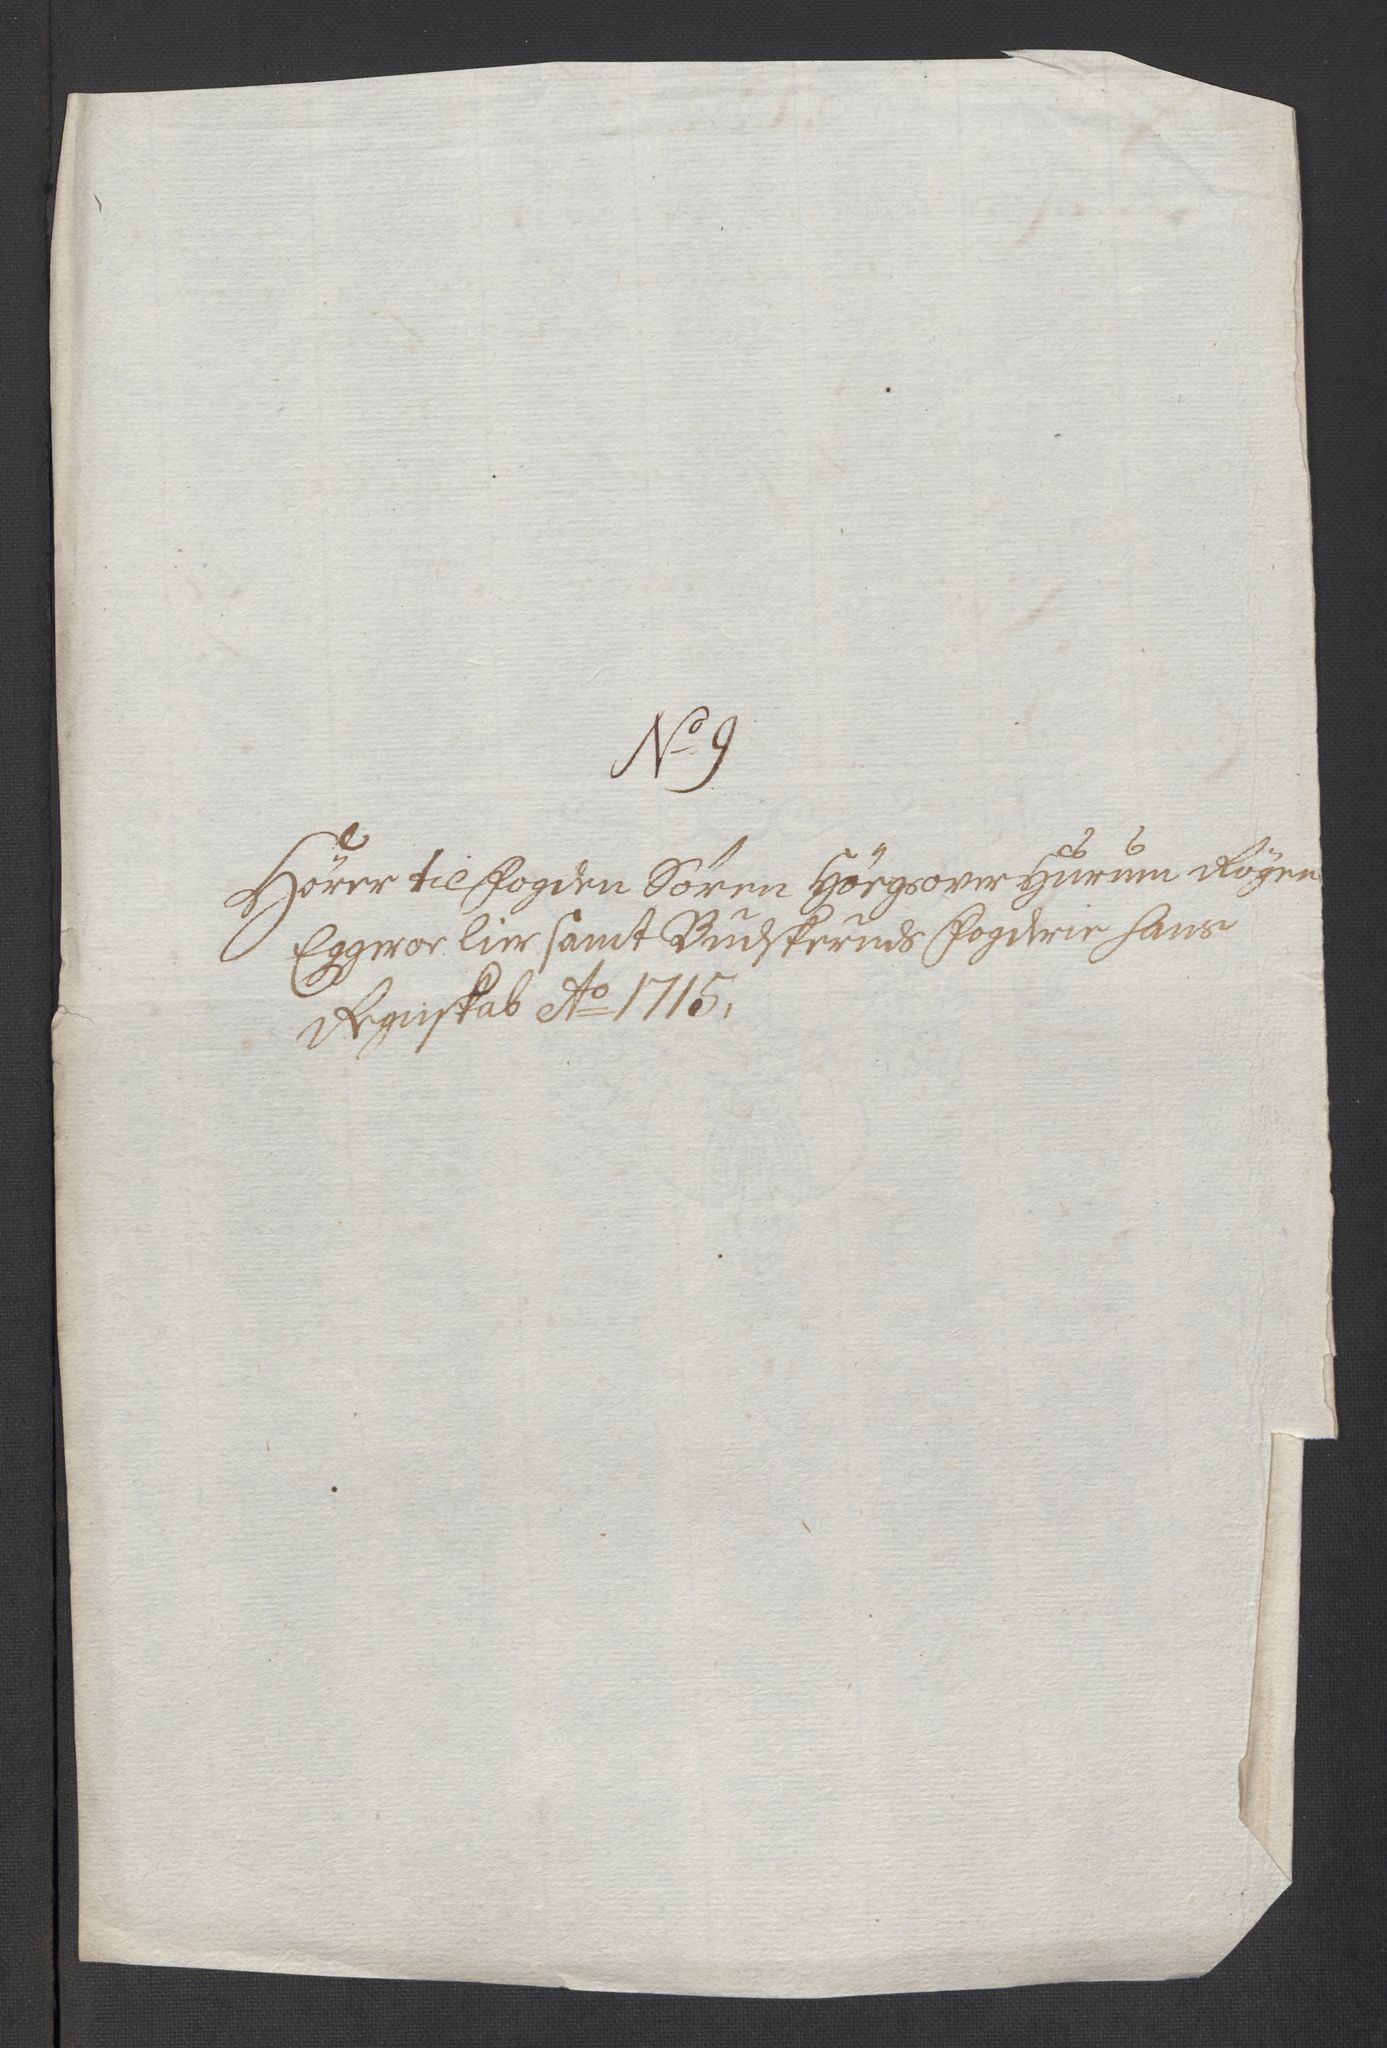 No 9
Hörer til Fogden Sören Höeg over Hurum Rögen
Egger oc Lier samt Budskeruds Fogderie hans
Regnskab Ao 1715.